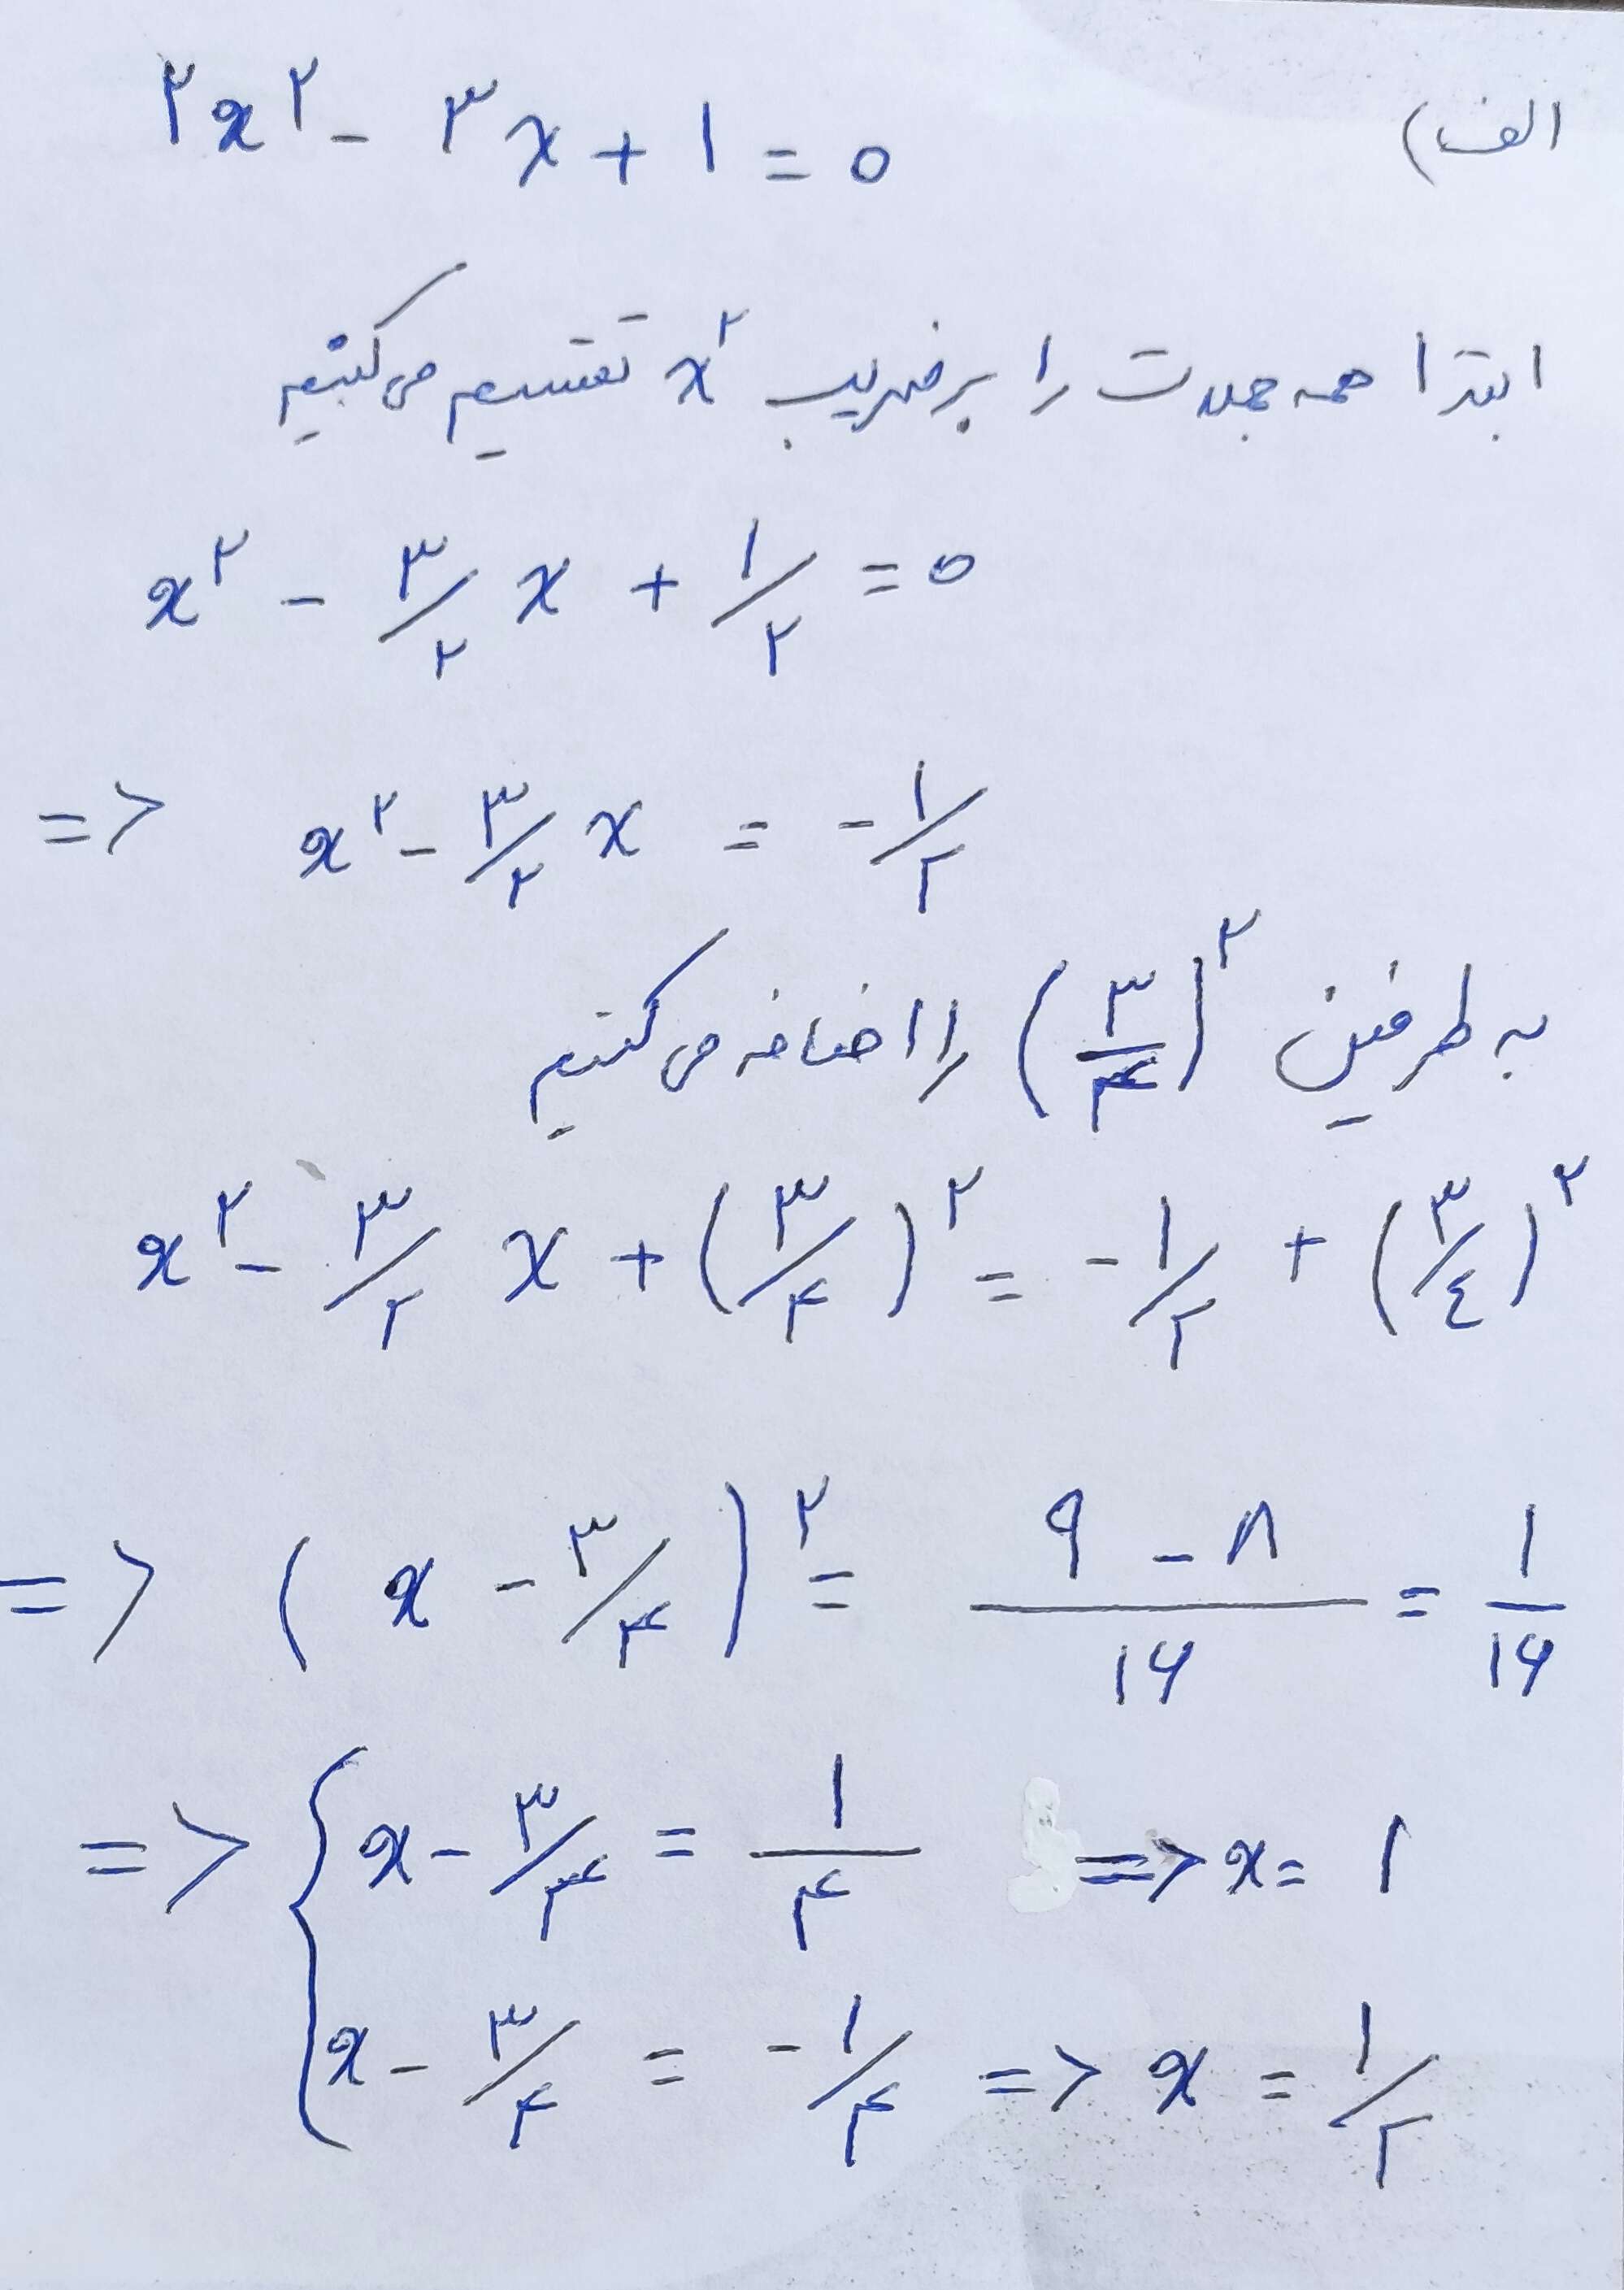 الف) ۲x^۲ - ۳x + ۱ = ۰
ابتدا همه جملات را بر ضریب x^۲ تقسیم می کنیم
x^۲ - ۳/۲ x + ۱/۲ = ۰
=> x^۲ - ۳/۲ x = -۱/۲
به طرفین (۳/۴)^۲ را اضافه می کنیم
x^۲ - ۳/۲ x + (۳/۴)^۲ = -۱/۲ + (۳/٤)^۲
=> (x - ۳/۴)^۲ = (۹ - ۸)/۱۶ = ۱/۱۶
=> { x - ۳/۴ = ۱/۴ => x = ۱
x - ۳/۴ = -۱/۴ => x = ۱/۲